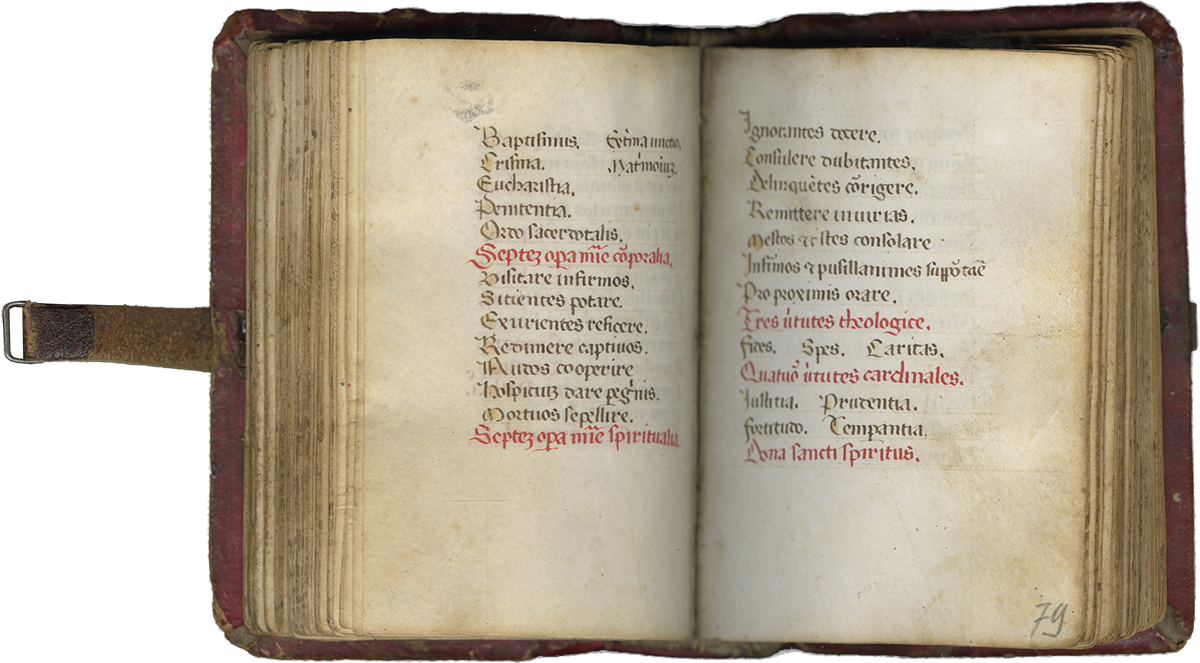 Baptismus. Extͬma unctio.
Crisma. Matͬmoiuʒ.
Eucharistia.
Penitentia.
Ordo sacerdotalis.
Septeʒ oꝑa mīe coꝛporalia.
Visitare infirmos.
Sitientes potare.
Exurientes reficere.
Redimere captiuos.
Nudos cooperire
Hospiciuʒ dare pegͥnis.
Mortuos sepellire.
Septeʒ oꝑa mīe spiritualia.
Ignorantes docere.
Consulere dubitantes.
Delinquētes coꝛrigere.
Remittere iniurias.
Mestos ⁊ tͥstes consolare
Infͥmos ⁊ pusillanimes
Pro proximis orare.
Tres uͥtutes theologice.
Fides. Spes. Caritas.
Quatuoꝛ uͥtutes cardinales.
Iustitia. Prudentia.
Fortitudo. Temꝑantia.
Dona sancti spiritus.
79